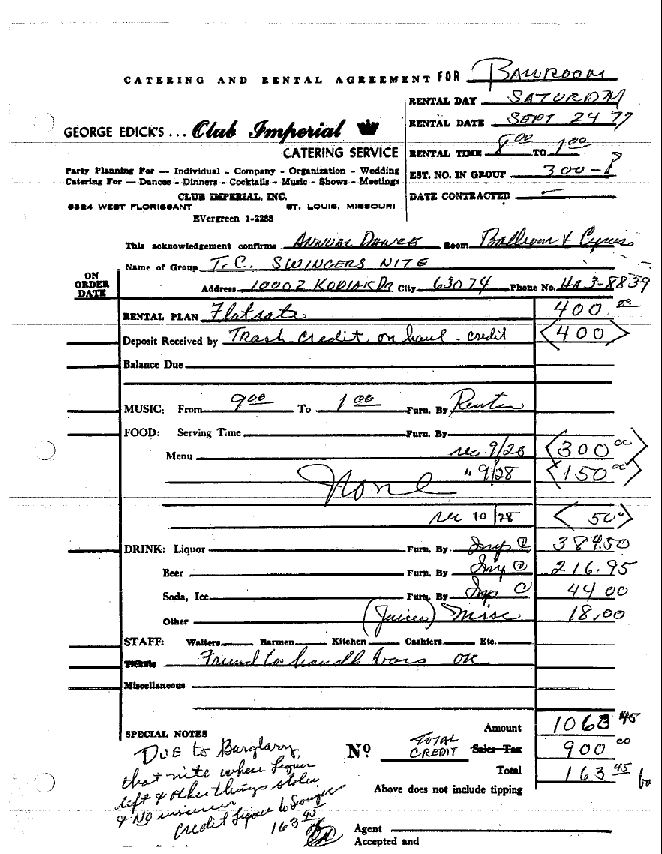 CATERING AND RENTAL AGREEMENT FOR BALLROOM
RENTAL DAY SATURDAY
GEORGE EDICK'S... Club Imperial
RENTAL DATE SEPT 24 77
CATERING SERVICE
RENTAL TIME 8 00 TO 1 00
Party Planning For — Individual - Company - Organization - Wedding
Catering For — Dances - Dinners - Cocktails - Music - Shows - Meetings
EST. NO. IN GROUP 300 - ?
CLUB IMPERIAL, INC.
DATE CONTRACTED
6324 WEST FLORISSANT ST. LOUIS, MISSOURI
EVergreen 1-2283
This acknowledgement confirms ANNUAL DANCE Room Ballroom &
Name of Group T.C. SWINGERS NITE
ON ORDER DATE
Address 10002 KODIAK DR City 63074 Phone No. 423-8839
RENTAL PLAN Flatrate 400.00
Deposit Received by Trash Credit on haul - credit <400>
Balance Due
MUSIC: From 9 00 To 1 00 Furn. By Renter
FOOD: Serving Time Furn. By
Menu rec 9/28 <300 00>
None " 9/28 <150 00>
rec 10/28 <50 00>
DRINK: Liquor Furn. By Imp 384.50
Beer Furn. By Imp 216.95
Soda, Ice Furn. By Imp 44 00
Other (Juices) Misc 18.00
STAFF: Waiters Barmen Kitchen Cashiers Etc.
Tickets Friend to handle OK
Miscellaneous
Amount 1063 45
SPECIAL NOTES
Nº TOTAL CREDIT Sales Tax 900 00
Total 163 45
Above does not include tipping
DUE to Burglary,
that nite where liquor
left & other things stolen
& NO insurance
Credit liquor to
163 45
Agent
Accepted and